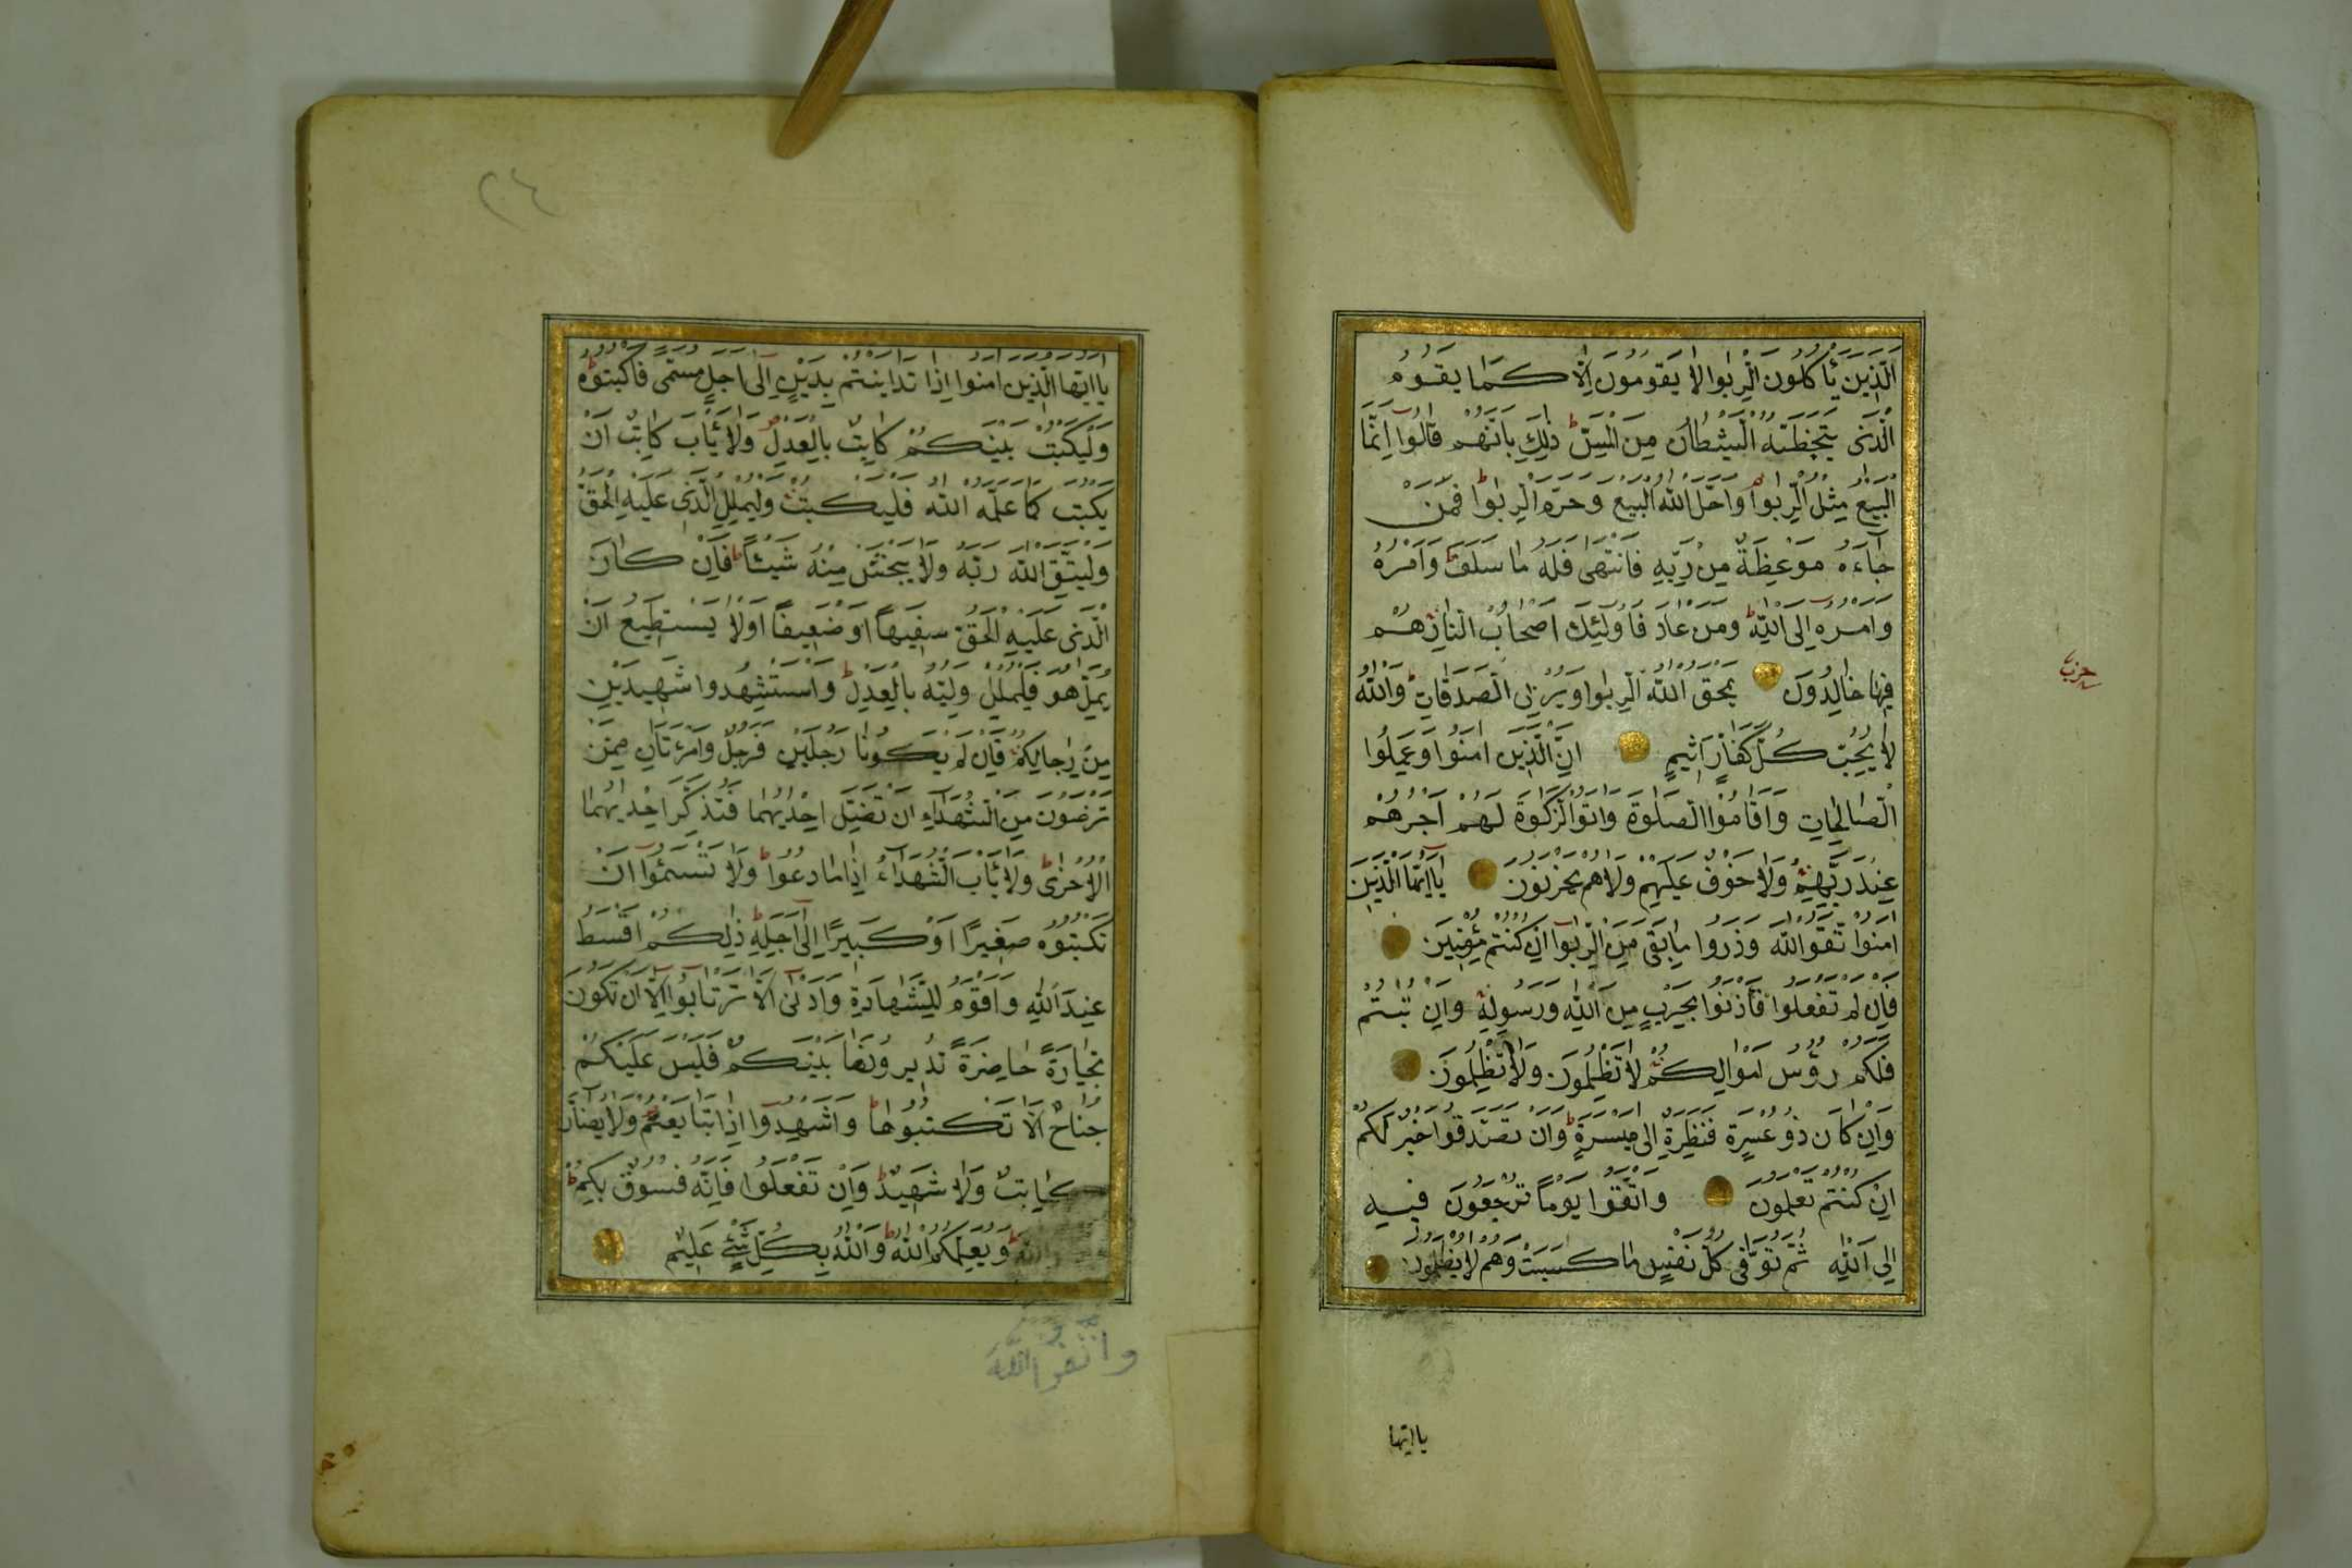 اَلَّذِينَ يَأْكُلُونَ الرِّبٰوا لَا يَقُومُونَ اِلَّا كَمَا يَقُومُ
الَّذِى يَتَخَبَّطُهُ الشَّيْطَانُ مِنَ الْمَسِّ ط ذٰلِكَ بِاَنَّهُمْ قَالُوا اِنَّمَا
الْبَيْعُ مِثْلُ الرِّبٰوا وَاَحَلَّ اللّٰهُ الْبَيْعَ وَحَرَّمَ الرِّبٰوا ط فَمَنْ
جَاءَهُ مَوْعِظَةٌ مِنْ رَبِّهِ فَانْتَهٰى فَلَهُ مَا سَلَفَ وَاَمْرُهُ
وَاَمْرُهُ اِلَى اللّٰهِ ط وَمَنْ عَادَ فَاُولٰئِكَ اَصْحَابُ النَّارِ هُمْ
فِيهَا خَالِدُونَ يَمْحَقُ اللّٰهُ الرِّبٰوا وَيُرْبِى الصَّدَقَاتِ ط وَاللّٰهُ
لَا يُحِبُّ كُلَّ كَفَّارٍ اَثِيمٍ اِنَّ الَّذِينَ اٰمَنُوا وَعَمِلُوا
الصَّالِحَاتِ وَاَقَامُوا الصَّلٰوةَ وَاٰتَوُا الزَّكٰوةَ لَهُمْ اَجْرُهُمْ
عِنْدَ رَبِّهِمْ وَلَا خَوْفٌ عَلَيْهِمْ وَلَا هُمْ يَحْزَنُونَ يَا اَيُّهَا الَّذِينَ
اٰمَنُوا تَّقُوا اللّٰهَ وَذَرُوا مَا بَقِىَ مِنَ الرِّبٰوا اِنْ كُنْتُمْ مُؤْمِنِينَ
فَاِنْ لَمْ تَفْعَلُوا فَأْذَنُوا بِحَرْبٍ مِنَ اللّٰهِ وَرَسُولِهِ وَاِنْ تُبْتُمْ
فَلَكُمْ رُؤُسُ اَمْوَالِكُمْ لَا تَظْلِمُونَ وَلَا تُظْلَمُونَ
وَاِنْ كَانَ ذُو عُسْرَةٍ فَنَظِرَةٌ اِلٰى مَيْسَرَةٍ ط وَاَنْ تَصَدَّقُوا خَيْرٌ لَكُمْ
اِنْ كُنْتُمْ تَعْلَمُونَ وَاتَّقُوا يَوْمًا تُرْجَعُونَ فِيهِ
اِلَى اللّٰهِ ثُمَّ تُوَفّٰى كُلُّ نَفْسٍ مَا كَسَبَتْ وَهُمْ لَا يُظْلَمُونَ
يا ايها
حزب
٢٤
يَا اَيُّهَا الَّذِينَ اٰمَنُوا اِذَا تَدَايَنْتُمْ بِدَيْنٍ اِلٰى اَجَلٍ مُسَمًّى فَاكْتُبُوهُ ط
وَلْيَكْتُبْ بَيْنَكُمْ كَاتِبٌ بِالْعَدْلِ وَلَا يَأْبَ كَاتِبٌ اَنْ
يَكْتُبَ كَمَا عَلَّمَهُ اللّٰهُ فَلْيَكْتُبْ وَلْيُمْلِلِ الَّذِى عَلَيْهِ الْحَقُّ
وَلْيَتَّقِ اللّٰهَ رَبَّهُ وَلَا يَبْخَسْ مِنْهُ شَيْئًا ط فَاِنْ كَانَ
الَّذِى عَلَيْهِ الْحَقُّ سَفِيهًا اَوْ ضَعِيفًا اَوْ لَا يَسْتَطِيعُ اَنْ
يُمِلَّ هُوَ فَلْيُمْلِلْ وَلِيُّهُ بِالْعَدْلِ ط وَاسْتَشْهِدُوا شَهِيدَيْنِ
مِنْ رِجَالِكُمْ فَاِنْ لَمْ يَكُونَا رَجُلَيْنِ فَرَجُلٌ وَامْرَءَتَانِ مِمَّنْ
تَرْضَوْنَ مِنَ الشُّهَدَاءِ اَنْ تَضِلَّ اِحْدٰيهُمَا فَتُذَكِّرَ اِحْدٰيهُمَا
الْاُخْرٰى ط وَلَا يَأْبَ الشُّهَدَاءُ اِذَا مَا دُعُوا ط وَلَا تَسْئَمُوا اَنْ
تَكْتُبُوهُ صَغِيرًا اَوْ كَبِيرًا اِلٰى اَجَلِهِ ط ذٰلِكُمْ اَقْسَطُ
عِنْدَ اللّٰهِ وَاَقْوَمُ لِلشَّهَادَةِ وَاَدْنٰى اَلَّا تَرْتَابُوا اِلَّا اَنْ تَكُونَ
تِجَارَةً حَاضِرَةً تُدِيرُونَهَا بَيْنَكُمْ فَلَيْسَ عَلَيْكُمْ
جُنَاحٌ اَلَّا تَكْتُبُوهَا ط وَاَشْهِدُوا اِذَا تَبَايَعْتُمْ وَلَا يُضَارَّ
كَاتِبٌ وَلَا شَهِيدٌ ط وَاِنْ تَفْعَلُوا فَاِنَّهُ فُسُوقٌ بِكُمْ ط
اللّٰهَ ط وَيُعَلِّمُكُمُ اللّٰهُ ط وَاللّٰهُ بِكُلِّ شَيْءٍ عَلِيمٌ
وَاتَّقُوا اللّٰهَ